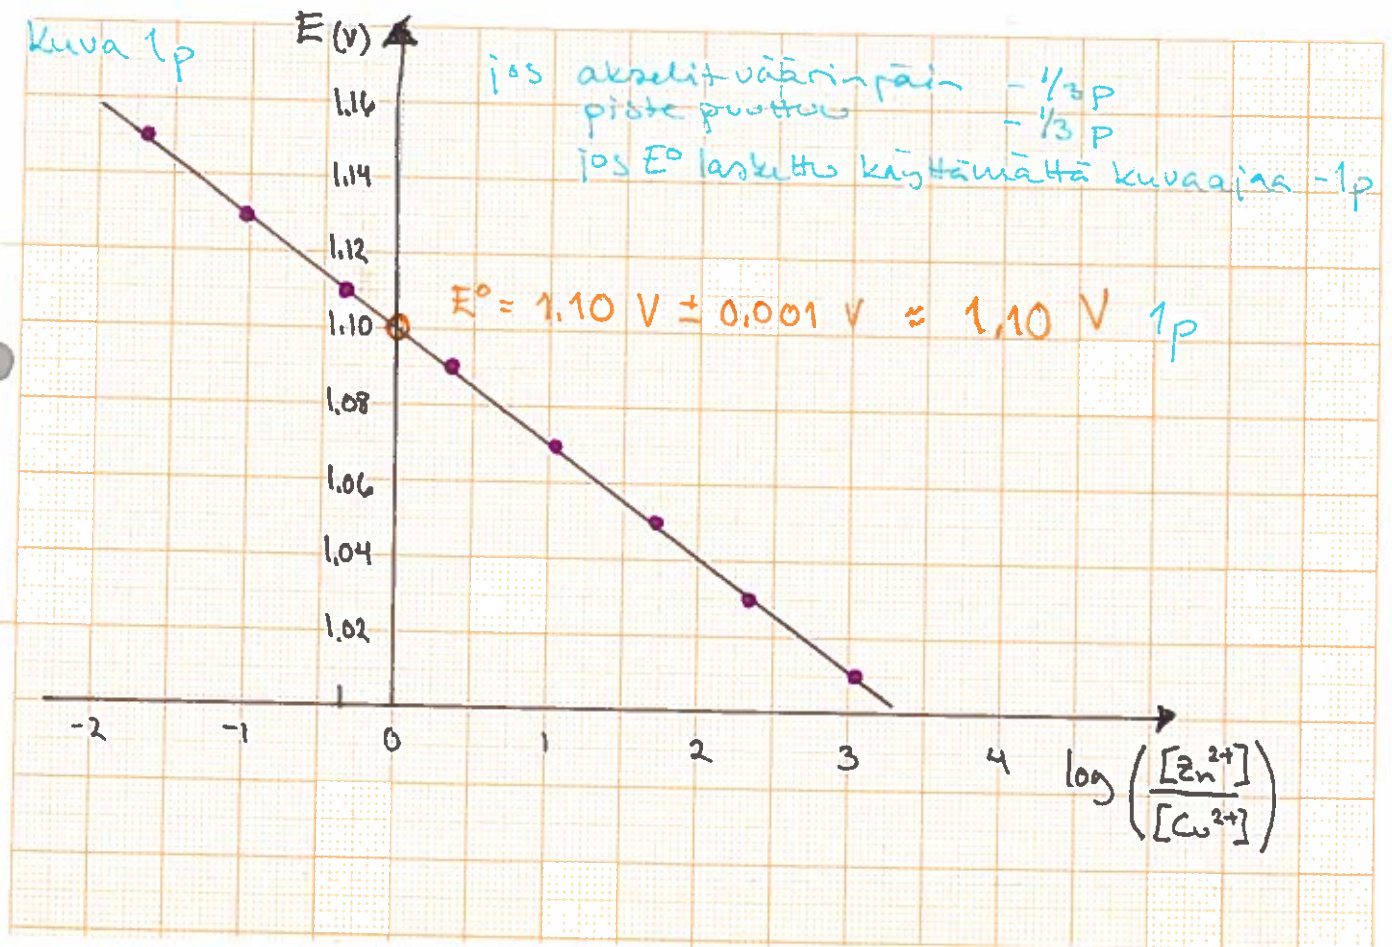 Kuva 1p
E (V)
jos akselit väärinpäin - 1/3 p
piste puuttuu - 1/3 p
jos E° laskettu käyttämättä kuvaajaa -1p
1.16
1.14
1.12
E° = 1.10 V ± 0.001 V ≈ 1.10 V 1p
1.10
1.08
1.06
1.04
1.02
-2 -1 0 1 2 3 4
log ([Zn²⁺]/[Cu²⁺])